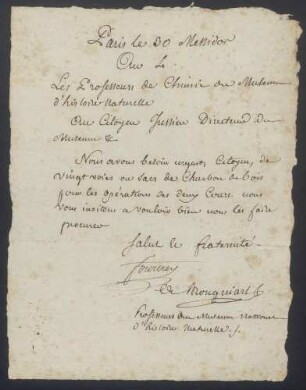 Paris le 30 Messidor
an
Les Professeurs de Chimie du Museum
d'histoire Naturelle
au Citoyen Jussieu Directeur du
Museum &
Nous avons besoin citoyen, de
vingt voies ou sacs de Charbon de bois
pour les opérations des deux Cours nous
vous invitons a vouloir bien nous les faire
procurer
Salut et fraternité
fourcroy
Brongniart
Professeurs au Museum national
d'histoire Naturelle